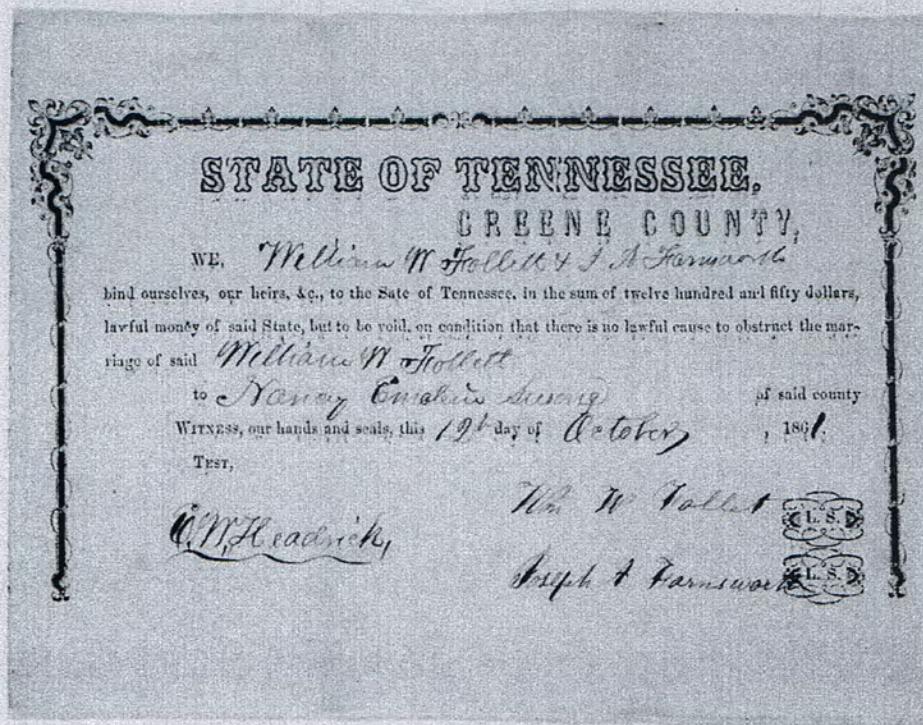 STATE OF TENNESSEE,
GREENE COUNTY,
WE, William W Follett & J A Farnsworth
bind ourselves, our heirs, &c., to the Sate of Tennessee, in the sum of twelve hundred and fifty dollars,
lawful money of said State, but to be void, on condition that there is no lawful cause to obstruct the mar-
riage of said William W Follett
to Nancy of said county
WITNESS, our hands and seals, this 12th day of October, 1861.
TEST,
Wm W Follet L. S.
C. W. Headrick,
Joseph A Farnsworth L. S.